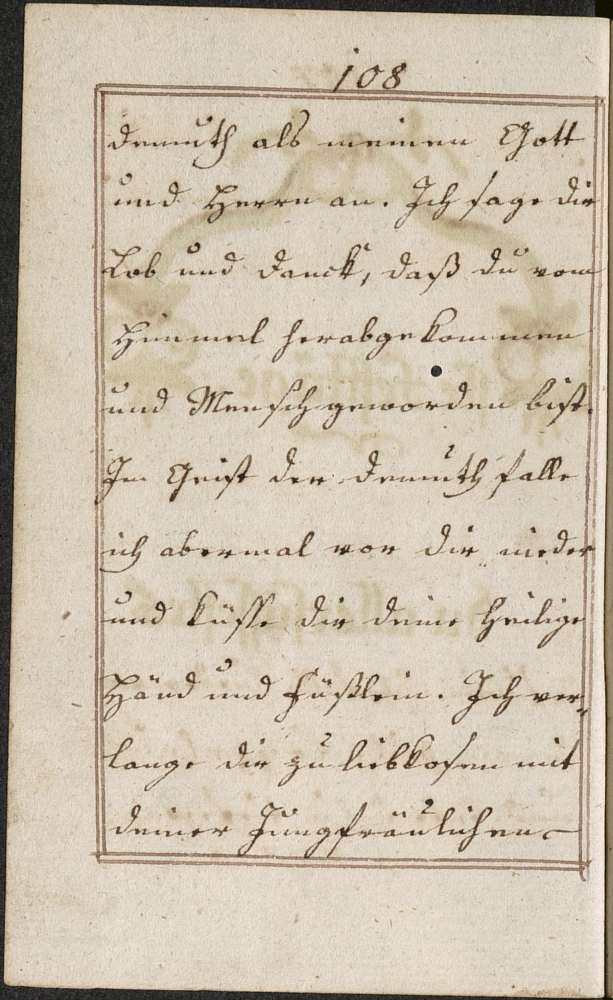 108
demuth als meinen Gott
und Herrn an. Ich sage dir
Lob und Danck, daß du vom
Himmel herabgekommen
und Mensch geworden bist.
Im Geist der demuth falle
ich abermal vor dir nieder
und küsse dir deine heilige
Händ und Füßlein. Ich ver-
lange dir zu liebkosen mit
deiner Jungfräulichen